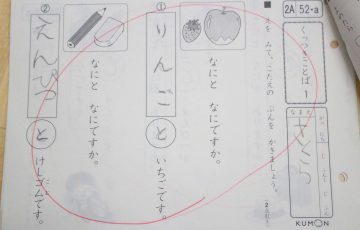 2A 52-a
くっつきことば 1
なまえ
さくら
■えを みて、こたえの ぶんを かきましょう。
なにと なにですか。
① りんご と いちごです。
なにと なにですか。
② えんぴつ と けしゴムです。
KUMON